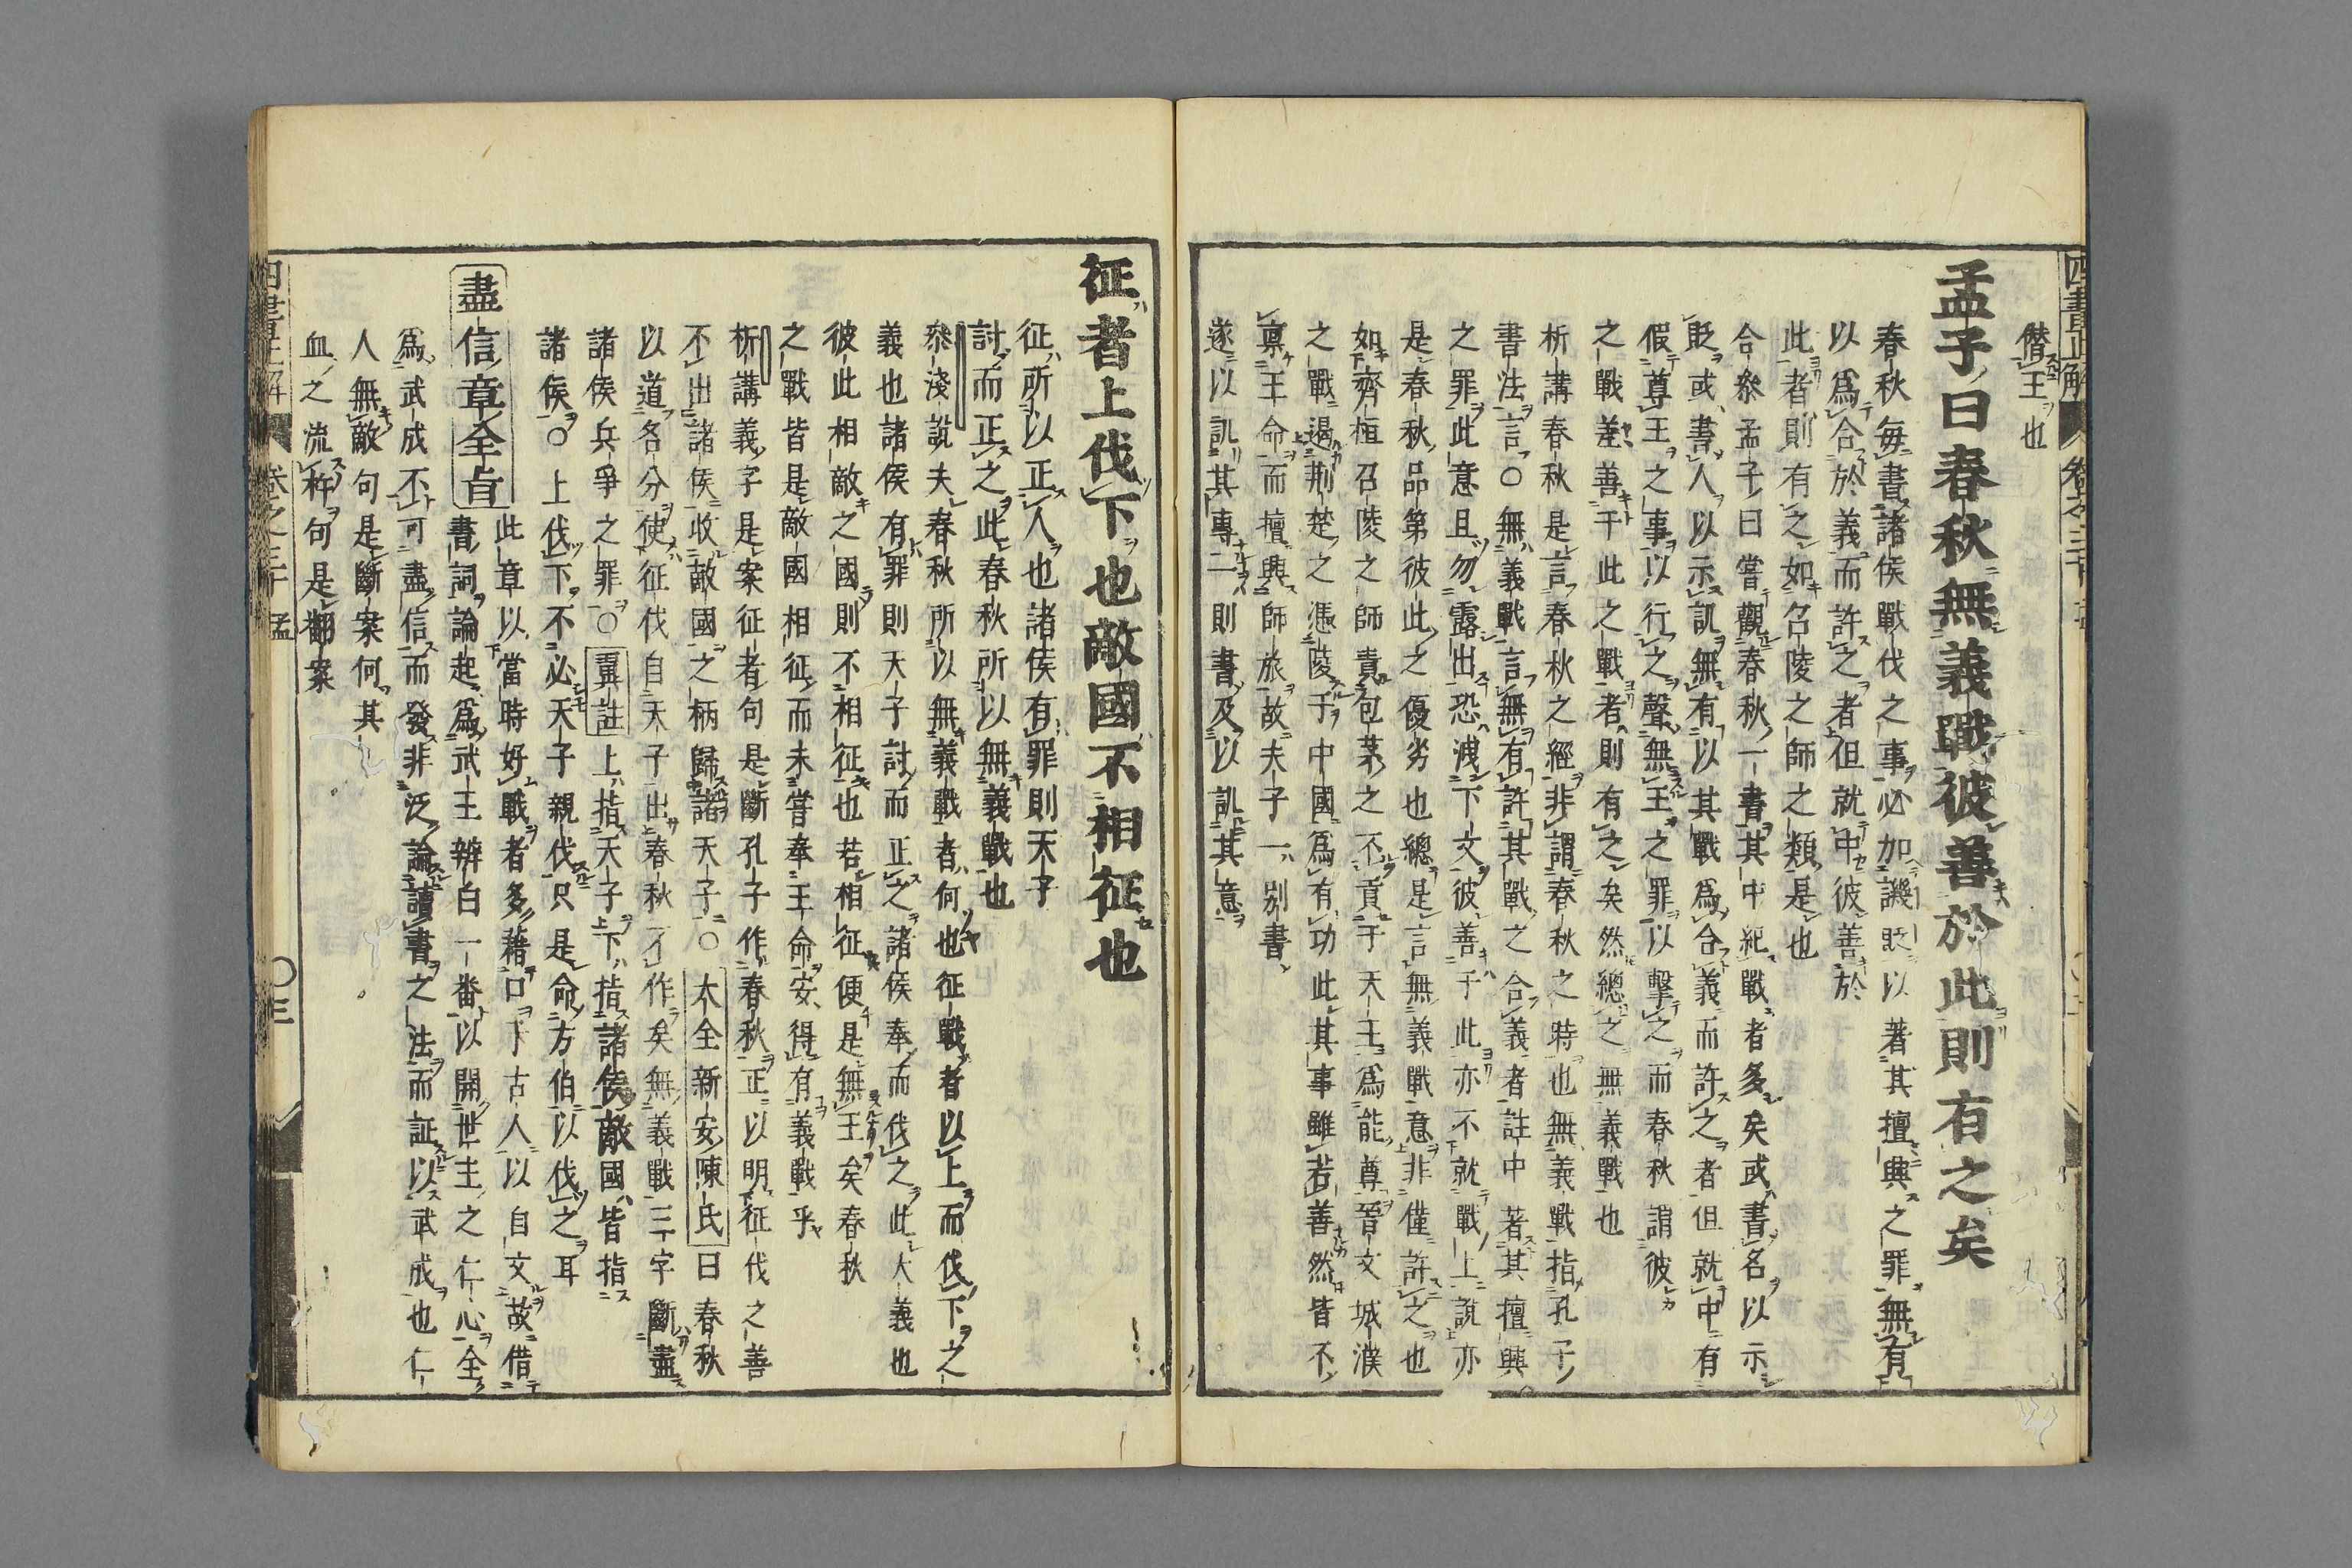 僭王也
孟子曰春秋無義戰彼善於此則有之矣
春秋每書諸侯戰伐之事必加譏貶以著其擅興之罪無有
以爲合於義而許之者但就中彼善於
此者則有之如召陵之師之類是也
合叅孟子曰嘗觀春秋一書其中紀戰者多矣或書名以示
貶或書人以示訊無有以其戰爲合義而許之者但就中有
假尊王之事以行之聲無王之罪以擊之而春秋謂彼
之戰差善于此之戰者則有之矣然總之無義戰也
析講春秋是言春秋之經非謂春秋之時也無義戰指孔子
書法言○無義戰言無有許其戰之合義者註中著其擅興
之罪此意且勿露出恐洩下文彼善于此亦不就戰上說亦
是春秋品第彼此之優劣也總是言無義戰意非僅許之也
如齊桓召陵之師責包茅之不貢于天王爲能尊晉文城濮
之戰遏荆楚之憑陵于中國爲有功此其事雖若善然皆不
禀王命而擅興師旅故夫子一別書
遂以訊其專二則書及以訊其意
征者上伐下也敵國不相征也
征所以正人也諸侯有罪則天子
討而正之此春秋所以無義戰也
叅淺說夫春秋所以無義戰者何也征戰者以上而伐下之
義也諸侯有罪則天子討而正之諸侯奉而伐之此大義也
彼此相敵之國則不相征也若相征便是無王矣春秋
之戰皆是敵國相征而未嘗奉王命安得有義戰乎
析講義字是案征者句是斷孔子作春秋正以明征伐之善
不出諸侯收敵國之柄歸諸天子○大全新安陳氏曰春秋
以道名分使征伐自天子出春秋不作矣無義戰三字斷盡
諸侯兵爭之罪○翼註上指天子下指諸侯敵國皆指
諸侯○上伐下不必天子親伐只是命方伯以伐之耳
盡信章全旨
此章以當時好戰者多藉口下古人以自文故借
書詞論起爲武王辨白一番以開世主之仁心全
爲武成不可盡信而發非泛論讀書之法而証以武成也仁
人無敵句是斷案何其
血之流杵句是翻案
四書正解 卷之三十 孟 ○三